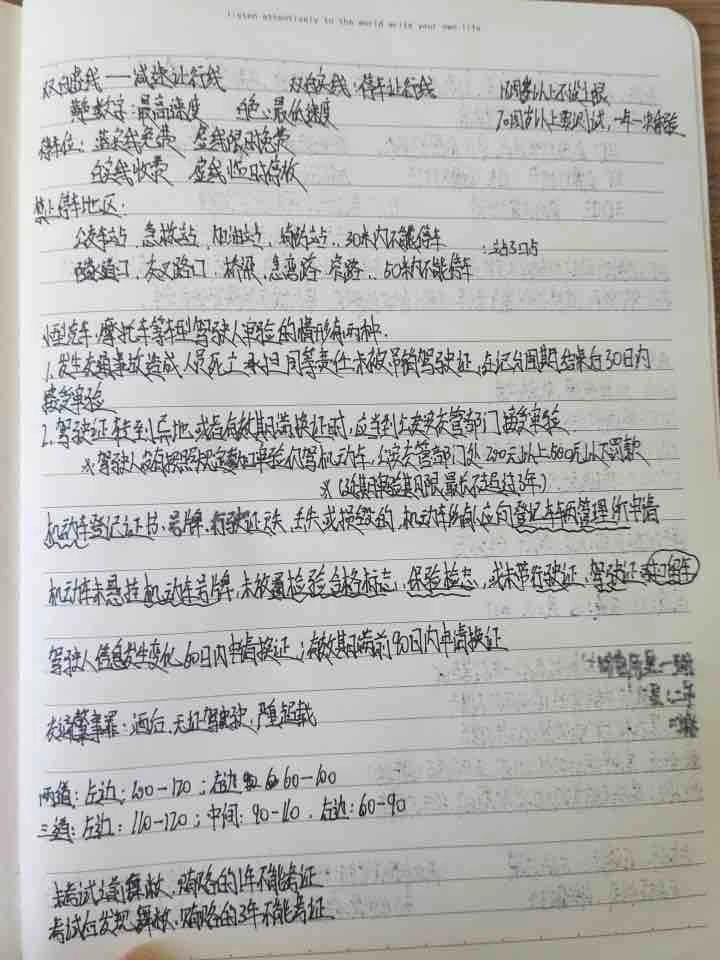 listen attentively to the world write your own life
双白虚线——减速让行线 双白实线:停车让行线 以上不设上限
黄色数字:最高速度 白色:最低速度 70周岁以上要测试,一年一次审验
停车位:蓝实线免费 虚线限时免费
白实线收费 虚线临时停放
禁止停车地区:
公交车站、急救站、加油站、消防站..30米内不能停车 :站30
隧道口、交叉路口、桥梁、急弯路、窄路..50米内不能停车
小型汽车、摩托车等车型驾驶人审验的情形有两种.
1.发生交通事故造成人员死亡承担同等责任未被吊销驾驶证,在记分周期结束后30日内
接受审验
2.驾驶证转到异地或者有效期满换证时,应当到公安交管部门接受审验.
※驾驶人没有按照规定参加审验仍驾机动车,公安交管部门处200元以上500元以下罚款
※(延期审验期限最长不超过3年)
机动车登记证书、号牌、行驶证灭失、丢失或损毁的,机动车所有人应向登记车辆管理所申请
机动车未悬挂机动车号牌,未放置检验合格标志、保险标志,或未带行驶证、驾驶证 扣留车
驾驶人信息发生变化60日内申请换证;有效期满前90日内申请换证
交通肇事罪:酒后、无证驾驶、严重超载
两道:左边:100-120;右边 60-100
三道:左边:110-120;中间:90-110、右边:60-90
考试前舞弊、贿赂的1年不能考证
考试后发现舞弊、贿赂的3年不能考证